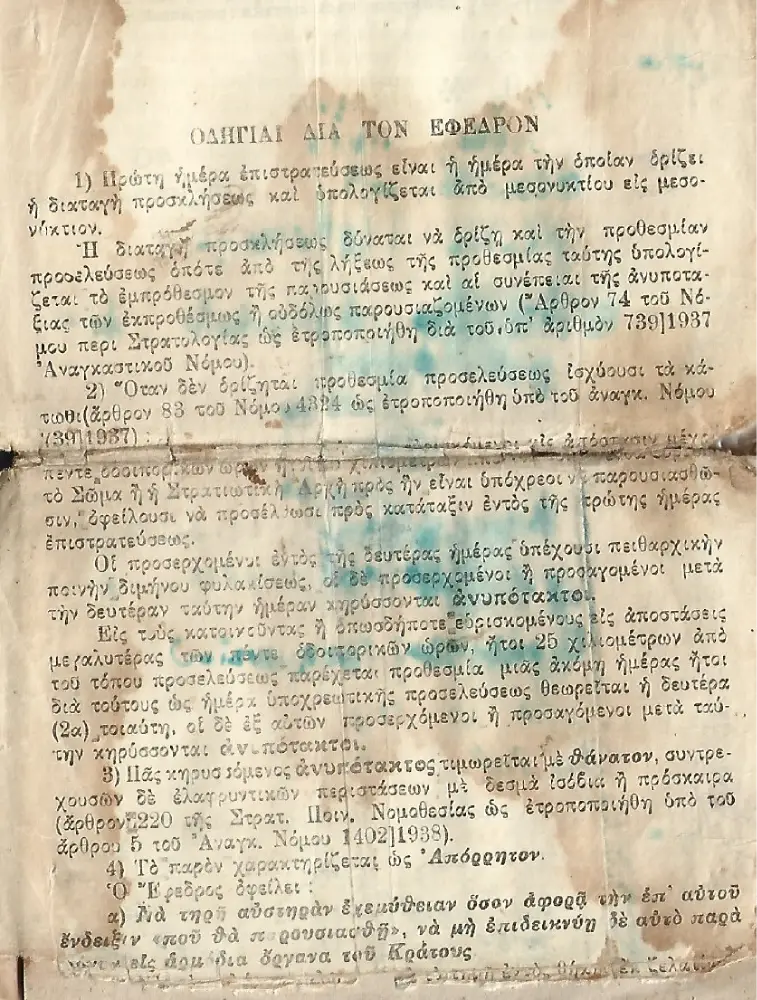 ΟΔΗΓΙΑΙ ΔΙΑ ΤΟΝ ΕΦΕΔΡΟΝ
1) Πρώτη ἡμέρα ἐπιστρατεύσεως εἶναι ἡ ἡμέρα τὴν ὁποίαν ὁρίζει
ἡ διαταγὴ προσκλήσεως καὶ ὑπολογίζεται ἀπὸ μεσονυκτίου εἰς μεσο-
νύκτιον.
Ἡ διαταγὴ προσκλήσεως δύναται νὰ ὁρίζῃ καὶ τὴν προθεσμίαν
προσελεύσεως ὁπότε ἀπὸ τῆς λήξεως τῆς προθεσμίας ταύτης ὑπολογί-
ζεται τὸ ἐμπρόθεσμον τῆς παρουσιάσεως καὶ αἱ συνέπειαι τῆς ἀνυποτα-
ξίας τῶν ἐκπροθέσμως ἢ οὐδόλως παρουσιαζομένων (Ἄρθρον 74 τοῦ Νό-
μου περὶ Στρατολογίας ὡς ἐτροποποιήθη διὰ τοῦ ὑπ' ἀριθμὸν 739]1937
Ἀναγκαστικοῦ Νόμου).
2) Ὅταν δὲν ὁρίζηται προθεσμία προσελεύσεως ἰσχύουσι τὰ κά-
τωθι (ἄρθρον 83 τοῦ Νόμου 4324 ὡς ἐτροποποιήθη ὑπὸ τοῦ ἀναγκ. Νόμου
739]1937) :
εἰς ἀπόστασιν μέχρι
πέντε ὁδοιπορικῶν ὡρῶν ἢ χιλιομέτρων
τὸ Σῶμα ἢ ἡ Στρατιωτικὴ Ἀρχὴ πρὸς ἣν εἶναι ὑπόχρεοι νὰ παρουσιασθῶ-
σιν, ὀφείλουσι νὰ προσέλθωσι πρὸς κατάταξιν ἐντὸς τῆς πρώτης ἡμέρας
ἐπιστρατεύσεως.
Οἱ προσερχομένοι ἐντὸς τῆς δευτέρας ἡμέρας ὑπέχουσι πειθαρχικὴν
ποινὴν διμήνου φυλακίσεως, οἱ δὲ προσερχομένοι ἢ προσαγομένοι μετὰ
τὴν δευτέραν ταύτην ἡμέραν κηρύσσονται ἀνυπότακτοι.
Εἰς τοὺς κατοικοῦντας ἢ ὁπωσδήποτε εὑρισκομένους εἰς ἀποστάσεις
μεγαλυτέρας τῶν πέντε ὁδοιπορικῶν ὡρῶν, ἤτοι 25 χιλιομέτρων ἀπὸ
τοῦ τόπου προσελεύσεως παρέχεται προθεσμία μιᾶς ἀκόμη ἡμέρας ἤτοι
διὰ τούτους ὡς ἡμέρα ὑποχρεωτικῆς προσελεύσεως θεωρεῖται ἡ δευτέρα
(2α) τοιαύτη, οἱ δὲ ἐξ αὐτῶν προσερχόμενοι ἢ προσαγόμενοι μετὰ ταύ-
την κηρύσσονται ἀνυπότακτοι.
3) Πᾶς κηρυσσόμενος ἀνυπότακτος τιμωρεῖται μὲ θάνατον, συντρε-
χουσῶν δὲ ἐλαφρυντικῶν περιστάσεων μὲ δεσμὰ ἰσόβια ἢ πρόσκαιρα
(ἄρθρον 220 τῆς Στρατ. Ποιν. Νομοθεσίας ὡς ἐτροποποιήθη ὑπὸ τοῦ
ἄρθρου 5 τοῦ Ἀναγκ. Νόμου 1402]1938).
4) Τὸ παρὸν χαρακτηρίζεται ὡς Ἀπόρρητον.
Ὁ Ἔφεδρος ὀφείλει :
α) Νὰ τηρῇ αὐστηρὰν ἐχεμύθειαν ὅσον ἀφορᾷ τὴν ἐπ' αὐτοῦ
ἔνδειξιν «ποῦ θὰ παρουσιασθῇ», νὰ μὴ ἐπιδεικνύῃ δὲ αὐτὸ παρὰ
μόνον εἰς ἁρμόδια ὄργανα τοῦ Κράτους